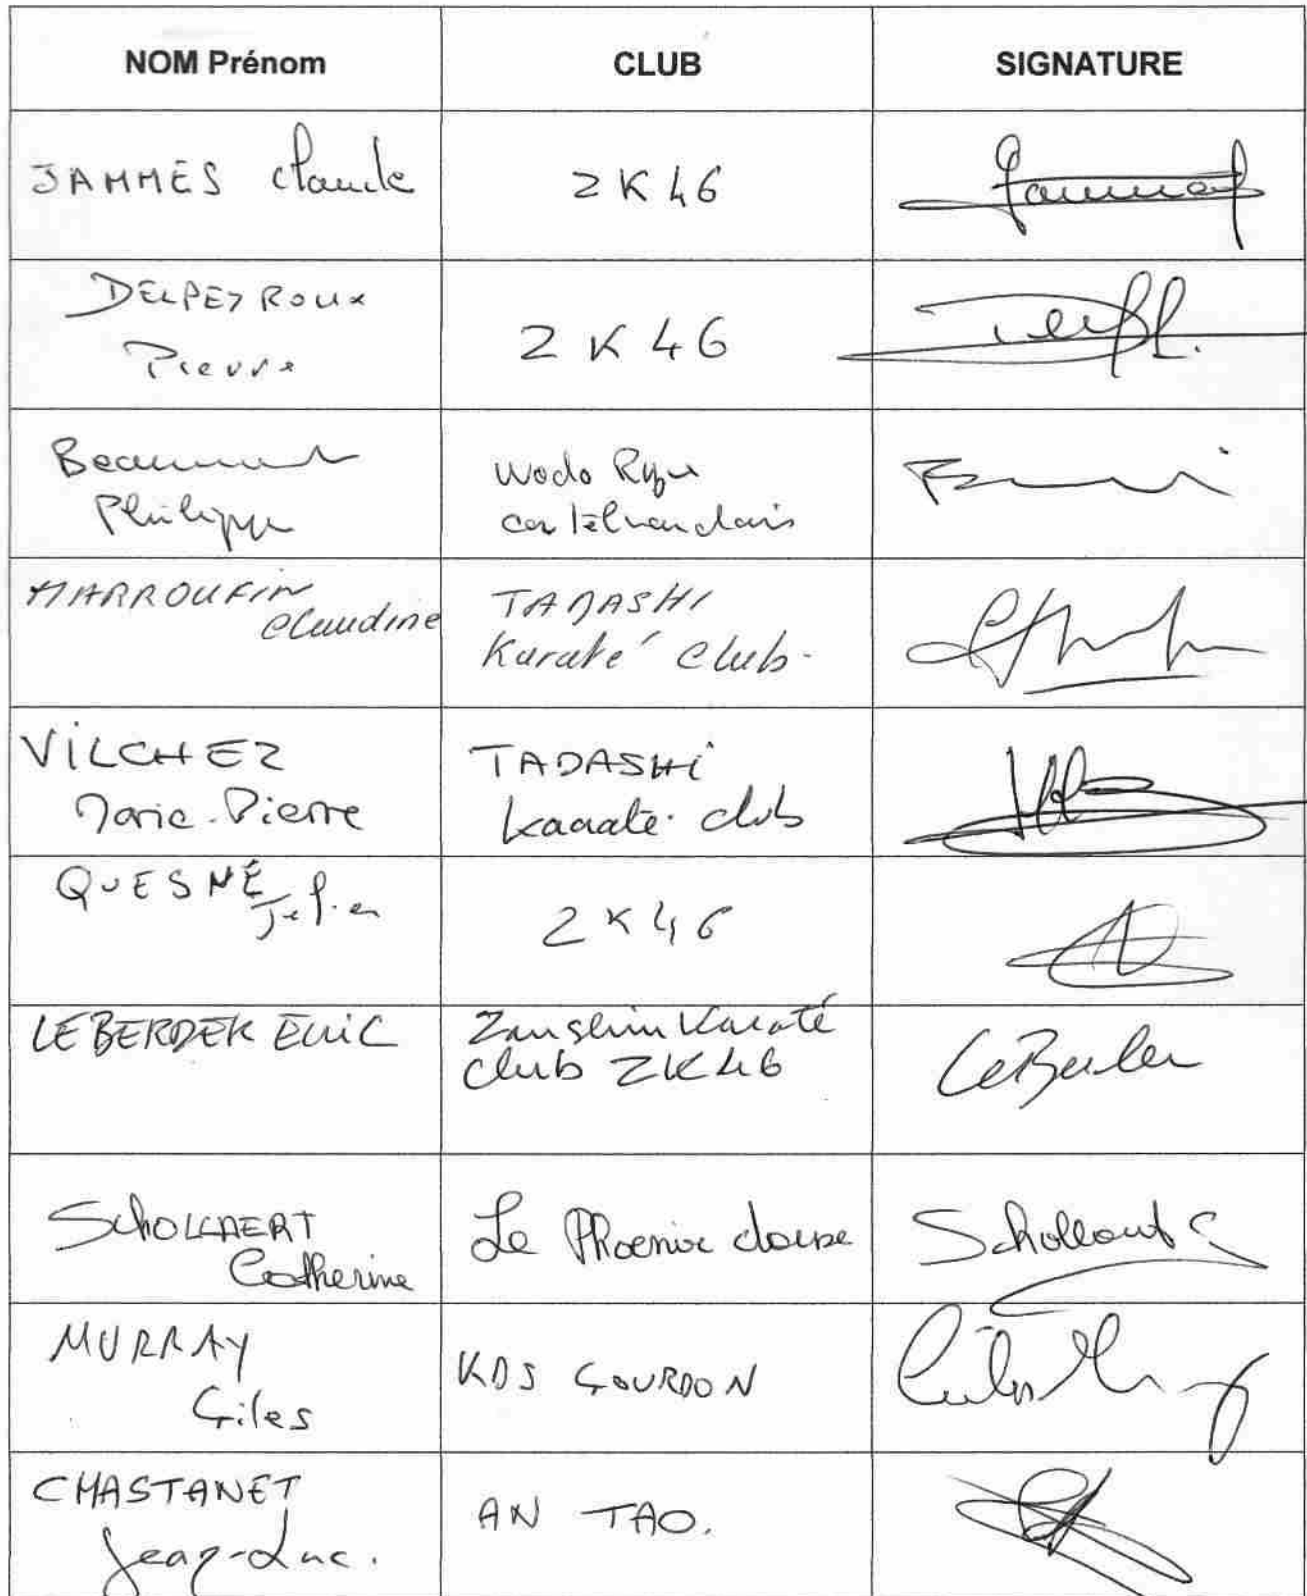 NOM Prénom CLUB SIGNATURE
JAMMES Claude 2K46
DELPEYROUX
Pierre
2 K 46
Beaumont
Philippe
Wado Ryu
castelnaudais
MARROUFIN
Claudine
TADASHI
Karaté Club.
VILCHEZ
Marie-Pierre
TADASHI
karaté club
QUESNÉ
2K46
LE BERDER
Zanshin Karaté
club ZK46
SCHOLLAERT
Catherine
Le Phoenix
Schollaert C
MURRAY
Giles
KDS GOURDON
CHASTANET
Jean-Luc.
AN TAO.